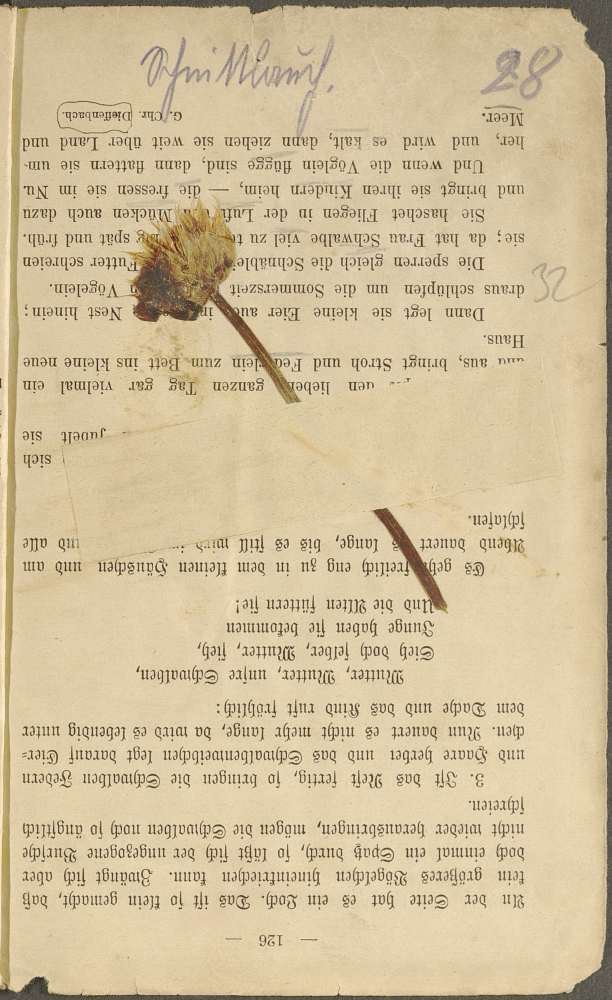 Schnittlauch.
28
32
— 126 —
An der Seite hat es ein Loch. Das ist so klein gemacht, daß
kein größeres Vögelchen hineinkriechen kann. Zwängt sich aber
doch einmal ein Spatz durch, so läßt sich der ungezogene Bursche
nicht wieder herausbringen, mögen die Schwalben noch so ängstlich
schreien.
3. Ist das Nest fertig, so bringen die Schwalben Federn
und Haare herbei und das Schwalbenweibchen legt darauf Eier-
chen. Nun dauert es nicht mehr lange, da wird es lebendig unter
dem Dache und das Kind ruft fröhlich:
Mutter, Mutter, unsre Schwalben,
Sieh doch selber, Mutter, sieh,
Junge haben sie bekommen
Und die Alten füttern sie!
Es geht freilich eng zu in dem kleinen Häuschen und am
Abend dauert es lange, bis es still wird und alle
schlafen.
sich
jubelt sie
den lieben ganzen Tag gar vielmal ein
und aus, bringt Stroh und Federlein zum Bett ins kleine neue
Haus.
Dann legt sie kleine Eier auch ins Nest hinein;
draus schlüpfen um die Sommerszeit Vögelein.
Die sperren gleich die Schnäblein Futter schreien
sie; da hat Frau Schwalbe viel zu spät und früh.
Sie haschet Fliegen in der Luft Mücken auch dazu
und bringt sie ihren Kindern heim, — die fressen sie im Nu.
Und wenn die Vöglein flügge sind, dann flattern sie um-
her, und wird es kalt, dann ziehen sie weit über Land und
Meer.
G. Chr. Dieffenbach.